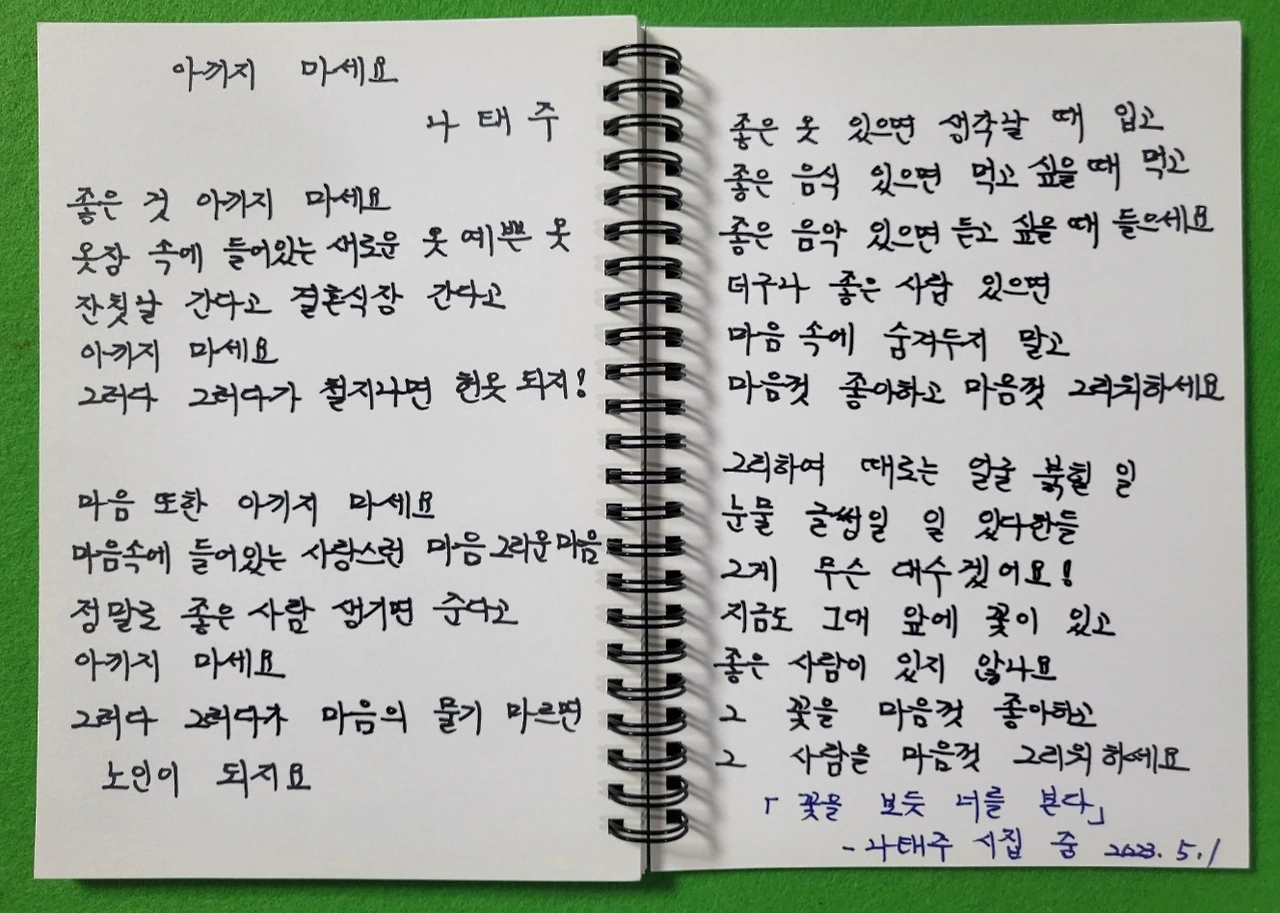 아끼지 마세요
나태주
좋은 것 아끼지 마세요
옷장 속에 들어있는 새로운 옷 예쁜 옷
잔칫날 간다고 결혼식장 간다고
아끼지 마세요
그러다 그러다가 철지나면 헌옷 되지!
마음 또한 아끼지 마세요
마음속에 들어있는 사랑스런 마음 그리운 마음
정말로 좋은 사람 생기면 준다고
아끼지 마세요
그러다 그러다가 마음의 물기 마르면
노인이 되지요
좋은 옷 있으면 생각날 때 입고
좋은 음식 있으면 먹고 싶을 때 먹고
좋은 음악 있으면 듣고 싶을 때 들으세요
더구나 좋은 사람 있으면
마음 속에 숨겨두지 말고
마음껏 좋아하고 마음껏 그리워하세요
그리하여 때로는 얼굴 붉힐 일
눈물 글썽일 일 있다한들
그게 무슨 대수겠어요!
지금도 그대 앞에 꽃이 있고
좋은 사람이 있지 않나요
그 꽃을 마음껏 좋아하고
그 사람을 마음껏 그리워하세요
「꽃을 보듯 너를 본다」
- 나태주 시집 중 2023. 5. 1